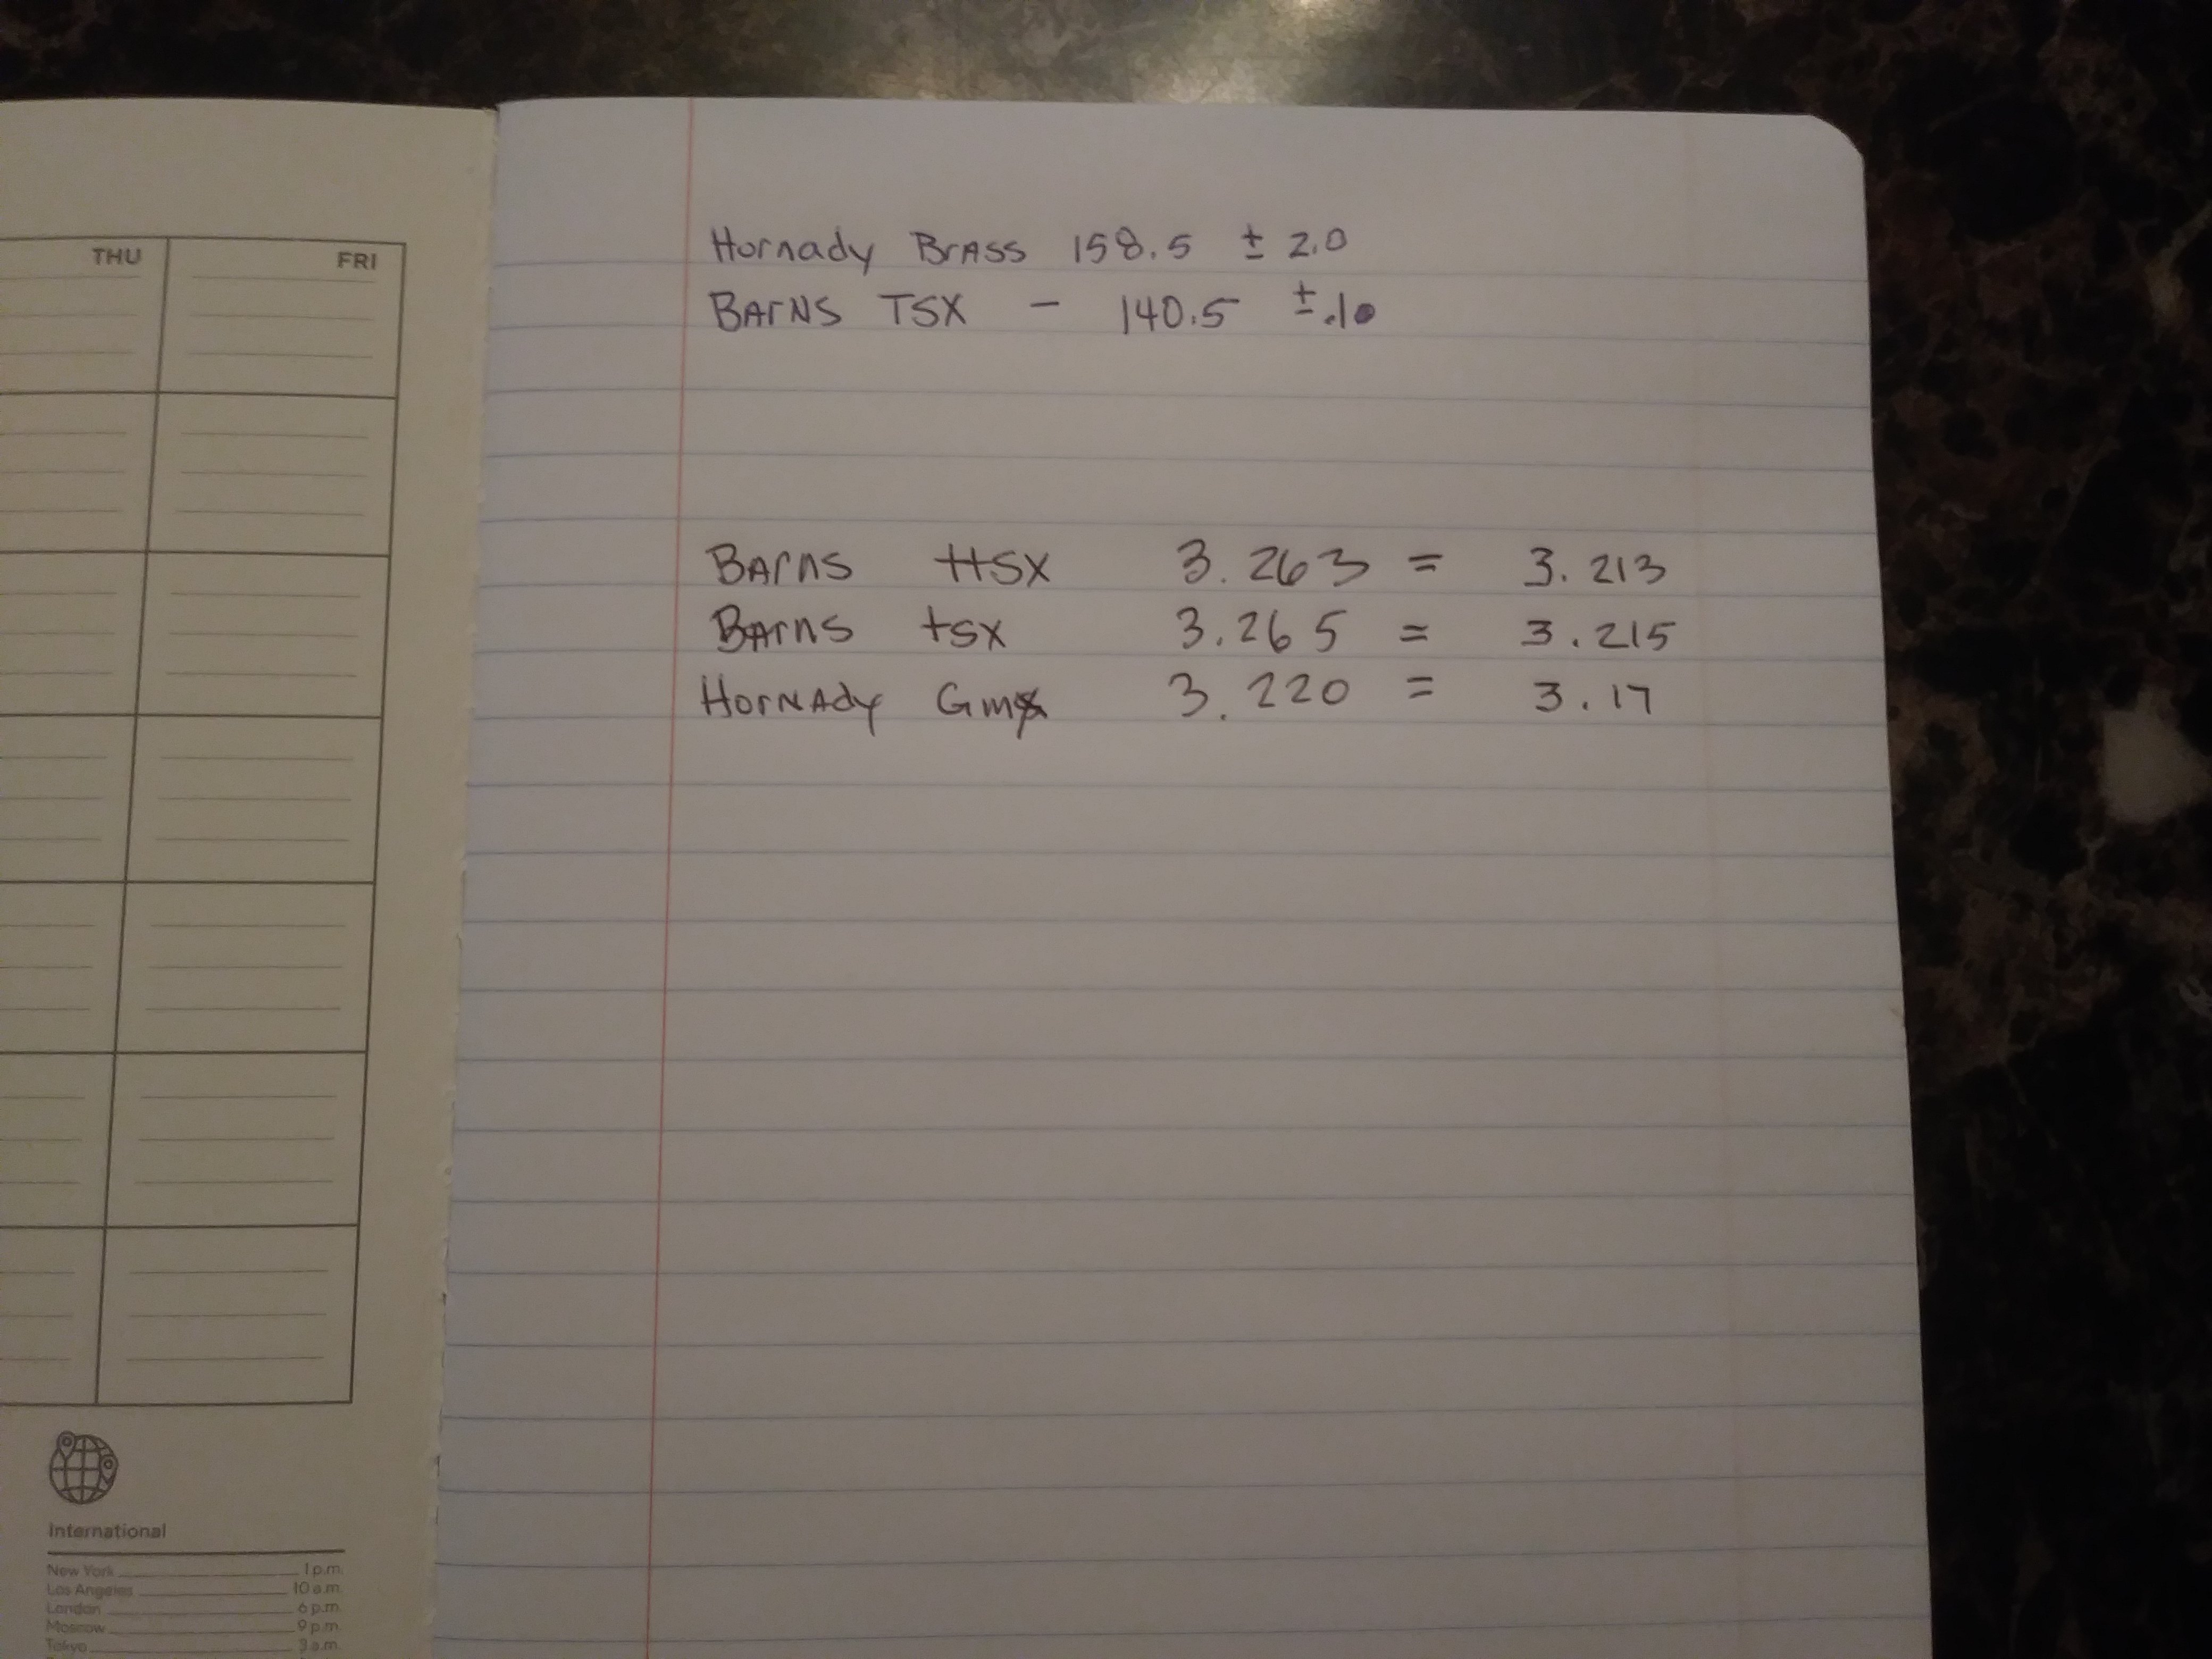 THU FRI
Hornady Brass 158.5 ± 2.0
Barns TSX - 140.5 ± .10
Barns ttsx 3.263 = 3.213
Barns tsx 3.265 = 3.215
Hornady Gmx 3.220 = 3.17
International
New York 1 p.m.
Los Angeles 10 a.m.
London 6 p.m.
Moscow 9 p.m.
Tokyo 3 a.m.